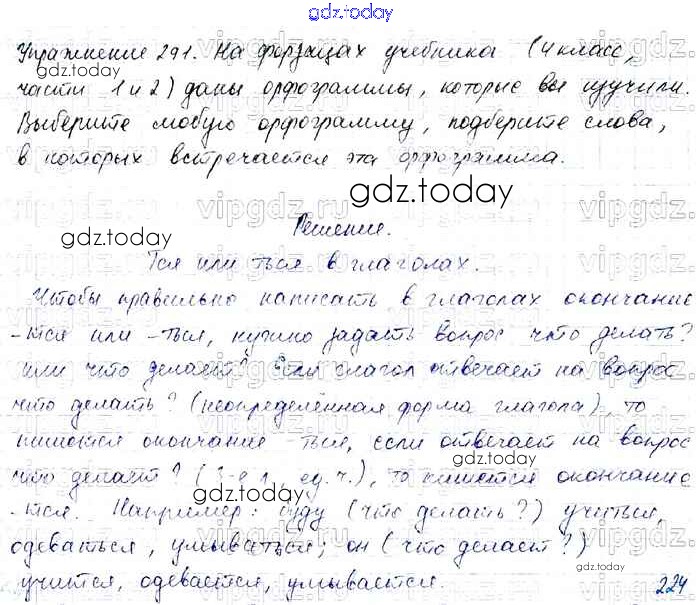 gdz.today
Упражнение 291. На форзацах учебника (4 класс,
части 1 и 2) даны орфограммы, которые вы изучили.
Выберите любую орфограмму, подберите слова,
в которых встречается эта орфограмма.
Решение.
Тся или ться в глаголах.
Чтобы правильно написать в глаголах окончание
-тся или -ться, нужно задать вопрос что делать?
или что делает? Если глагол отвечает на вопрос
что делать? (неопределённая форма глагола), то
пишется окончание -ться, если отвечает на вопрос
что делает? (3-е л., ед. ч.), то пишется окончание
-тся. Например: буду (что делать?) учиться,
одеваться, умываться; он (что делает?)
учится, одевается, умывается.
224
gdz.today
gdz.today
gdz.today
gdz.today
gdz.today
gdz.today
gdz.today
vipgdz.ru